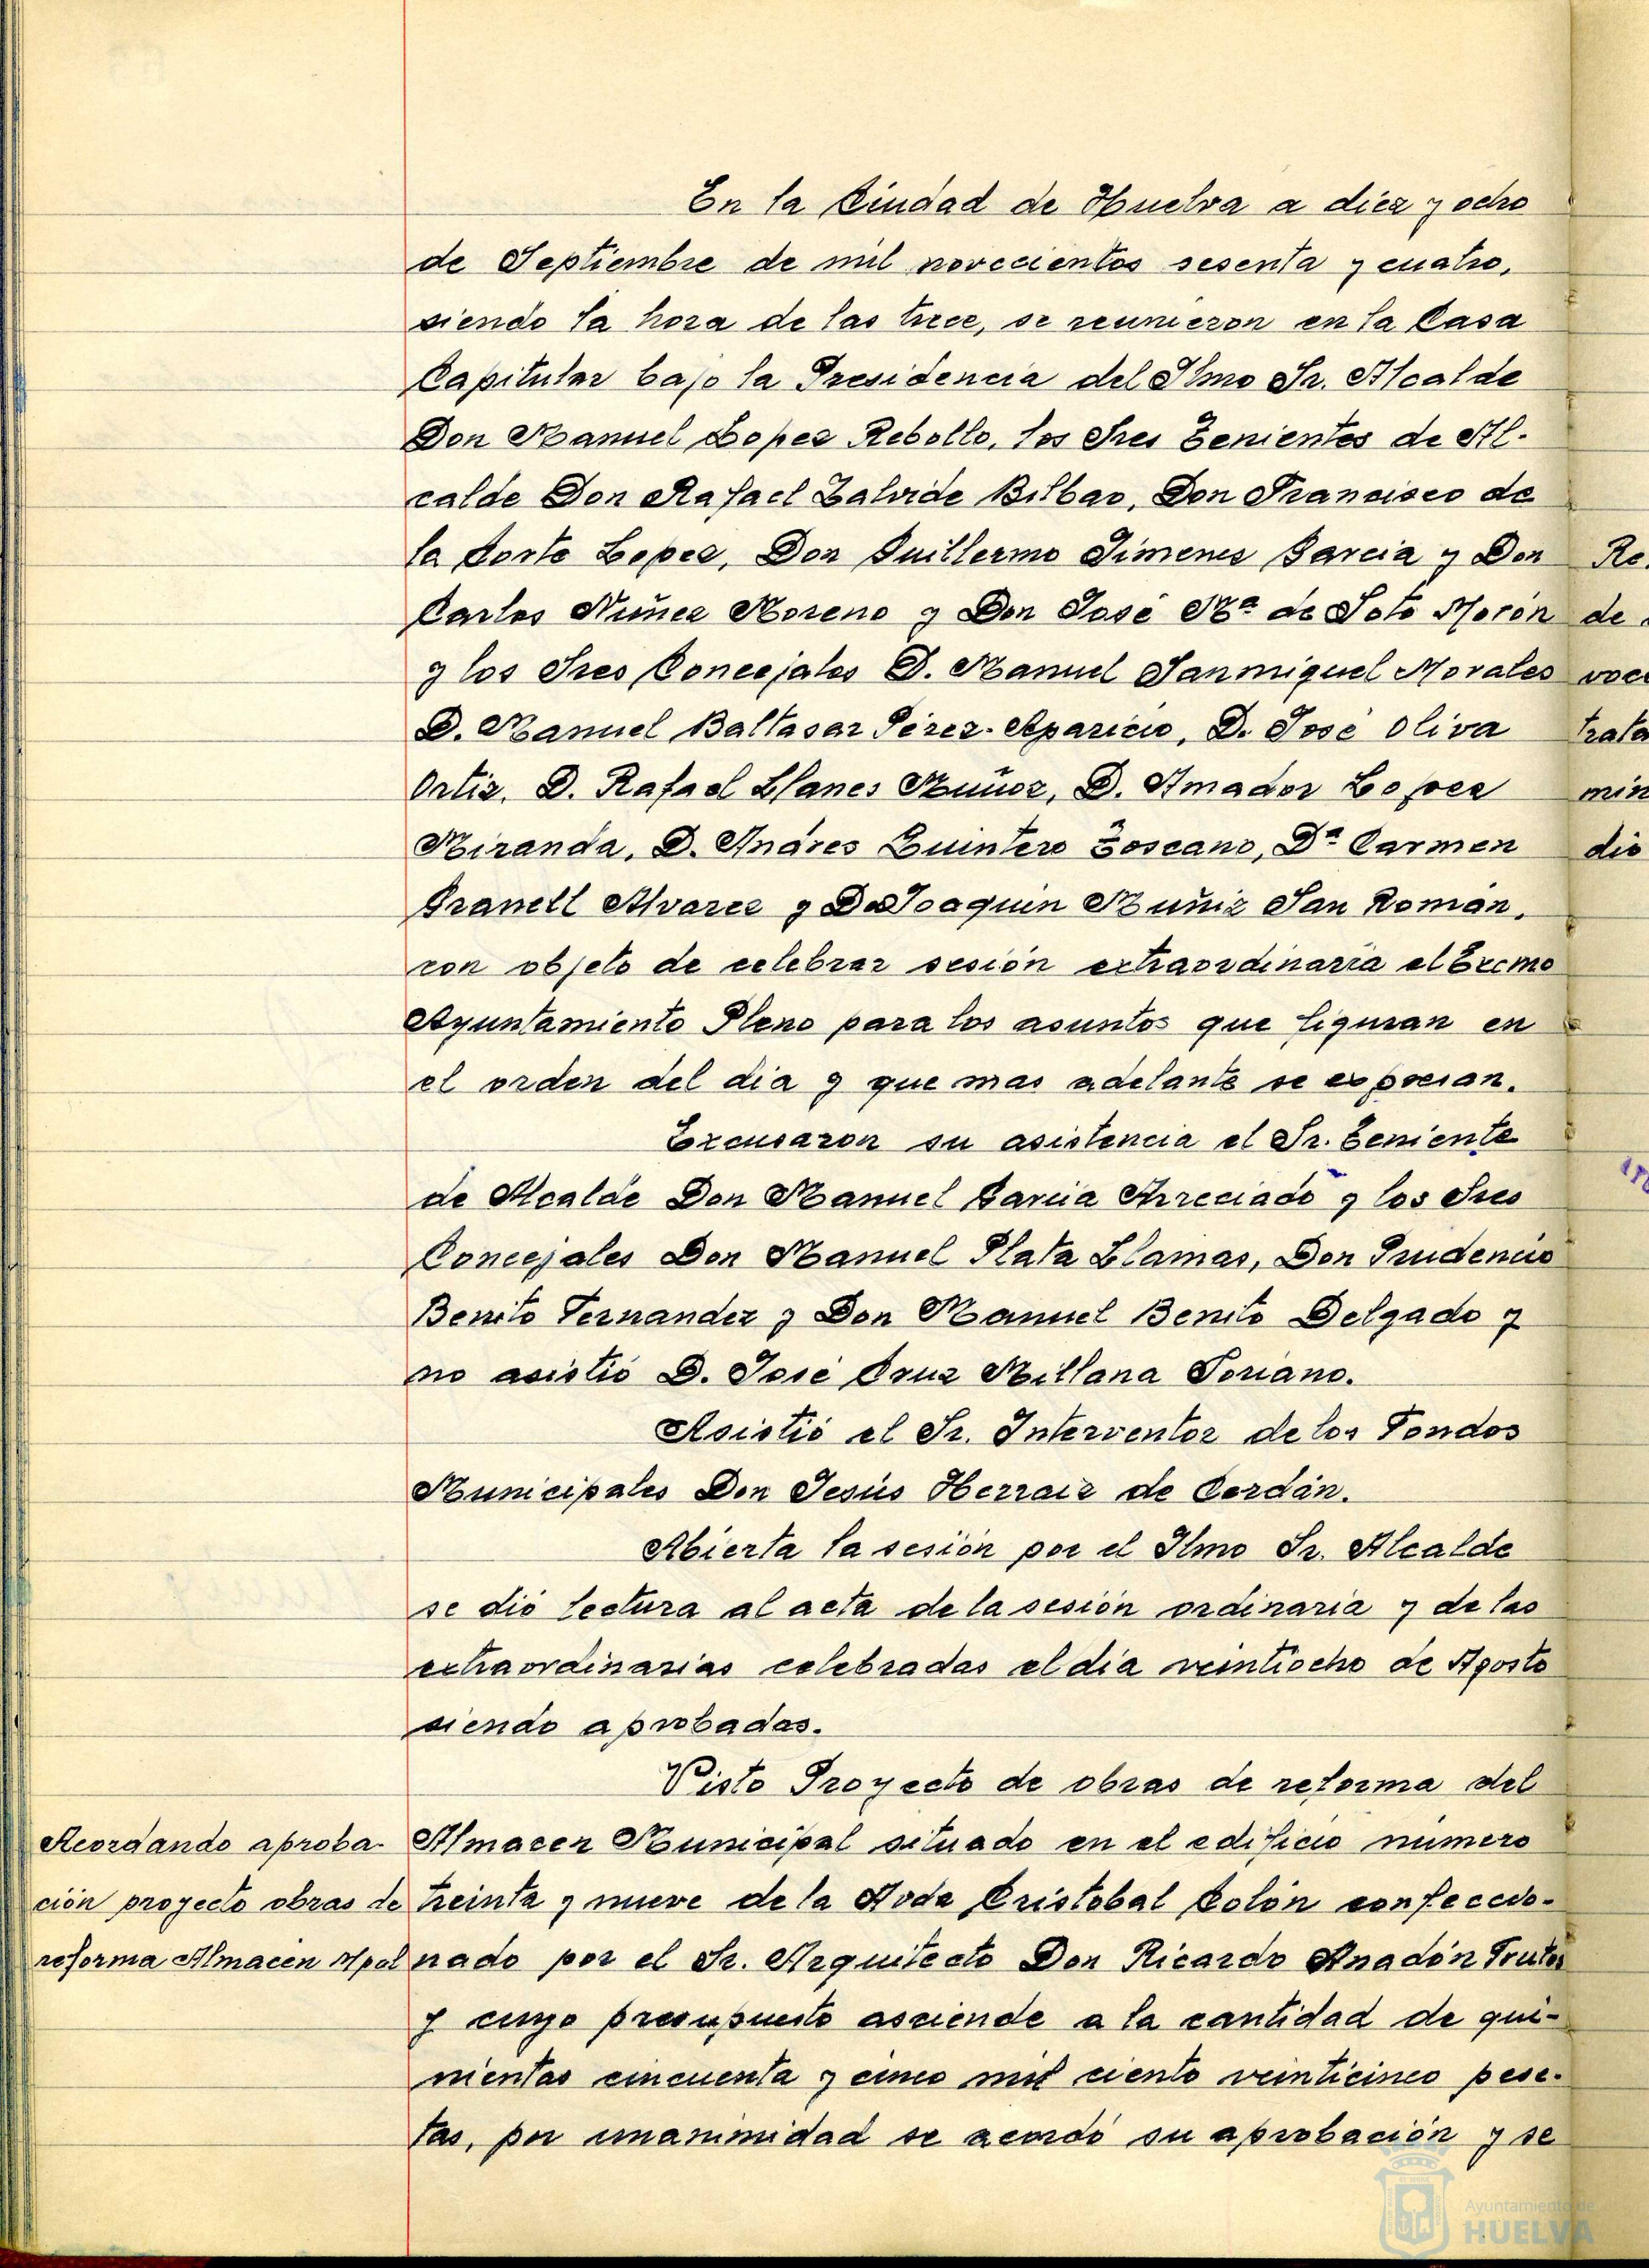 En la Ciudad de Huelva a diez y ocho
de Septiembre de mil novecientos sesenta y cuatro,
siendo la hora de las trece, se reunieron en la Casa
Capitular bajo la Presidencia del Ilmo Sr. Alcalde
Don Manuel Lopez Rebollo, los Sres Tenientes de Al-
calde Don Rafael Zalvide Bilbao, Don Francisco de
la Corte Lopez, Don Guillermo Jimenez Garcia y Don
Carlos Nuñez Moreno y Don José Mª de Soto Morón
y los Sres Concejales D. Manuel Sanmiguel Morales
D. Manuel Baltasar Pérez-Aparicio, D. José Oliva
Ortiz, D. Rafael Llanes Muñoz, D. Amador Lopez
Miranda, D. Andres Quintero Toscano, Dª Carmen
Granell Alvarez y D. Joaquin Muñiz San Román,
con objeto de celebrar sesión extraordinaria el Excmo
Ayuntamiento Pleno para los asuntos que figuran en
el orden del dia y que mas adelante se expresan.
Excusaron su asistencia el Sr. Teniente
de Alcalde Don Manuel Garcia Arreciado y los Sres
Concejales Don Manuel Plata Llamas, Don Prudencio
Benito Fernandez y Don Manuel Benito Delgado y
no asistió D. José Cruz Millana Soriano.
Asistió el Sr. Interventor de los Fondos
Municipales Don Jesús Herraiz de Cordán.
Abierta la sesión por el Ilmo Sr. Alcalde
se dió lectura al acta de la sesión ordinaria y de las
extraordinarias celebradas el dia veintiocho de Agosto
siendo aprobadas.
Visto Proyecto de obras de reforma del
Acordando aproba-
ción proyecto obras de
reforma Almacen Mpal
Almacen Municipal situado en el edificio número
treinta y nueve de la Avda Cristobal Colón confeccio-
nado por el Sr. Arquitecto Don Ricardo Anadón Frutos
y cuyo presupuesto asciende a la cantidad de qui-
nientas cincuenta y cinco mil ciento veinticinco pese-
tas, por unanimidad se acordó su aprobación y se
Re
de
voca
trata
min
dió
Ayuntamiento de
HUELVA